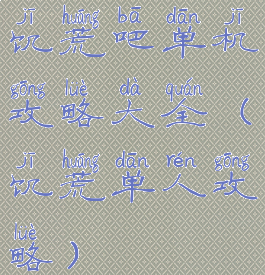 jī huāng bā dān jī
饥荒吧单机
gōng lüè dà quán
攻略大全（
jī huāng dān rén gōng
饥荒单人攻
lüè
略）